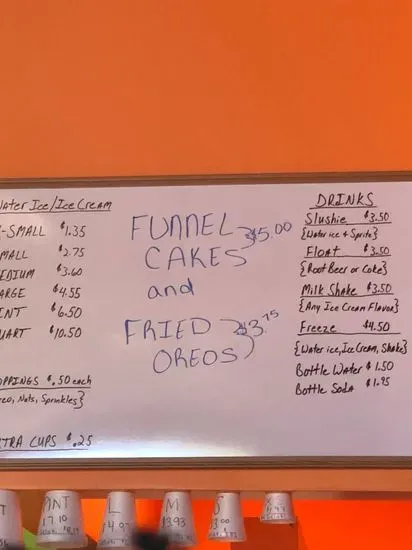 Water Ice/Ice Cream
X-SMALL $1.35
SMALL $2.75
MEDIUM $3.60
LARGE $4.55
PINT $6.50
QUART $10.50
TOPPINGS $.50 each
{Oreo, Nuts, Sprinkles}
EXTRA CUPS $.25
FUNNEL
CAKES $5.00
and
FRIED
OREOS $3.75
DRINKS
Slushie $3.50
{Water ice + Sprite}
Float $3.50
{Root Beer or Coke}
Milk Shake $3.50
{Any Ice Cream Flavor}
Freeze $4.50
{Water ice, Ice Cream, Shake}
Bottle Water $1.50
Bottle Soda $1.95
PINT
17.10
L
4.97
M
3.93
S
3.00